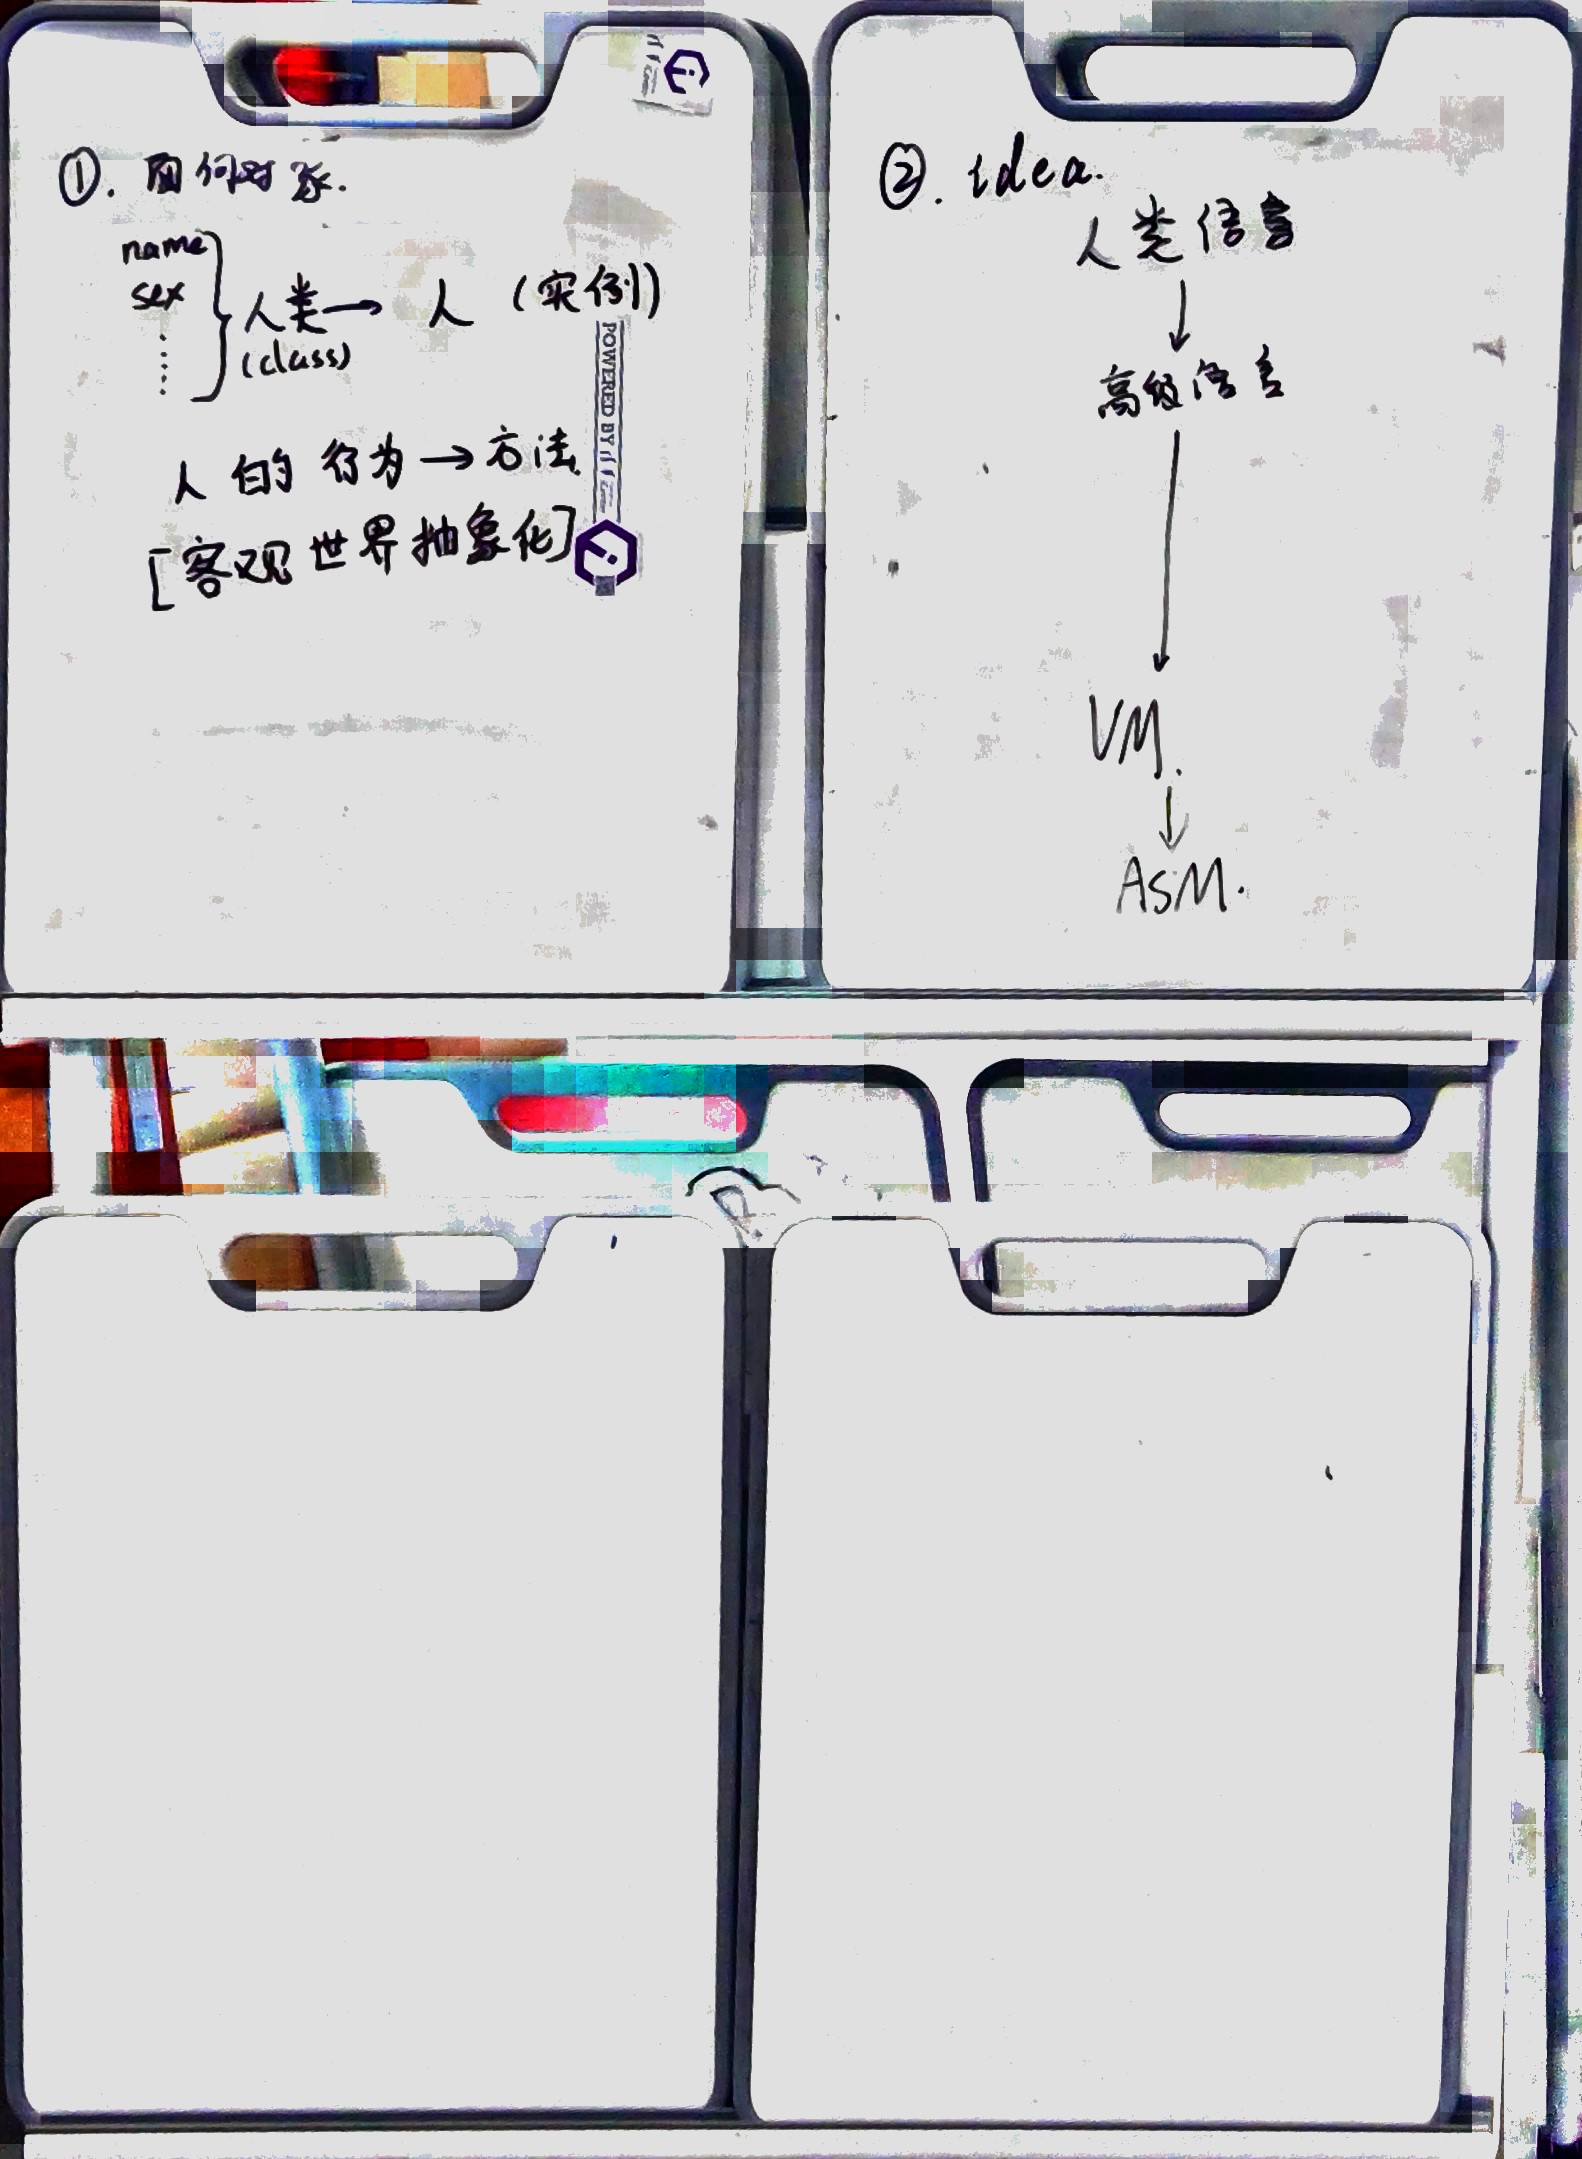 ①. 面向对象.
name
sex
⋮
人类 → 人 (实例)
(class)
人的行为 → 方法.
[客观世界抽象化]
POWERED BY
②. idea.
人类语言
↓
高级语言
↓
VM.
↓
ASM.